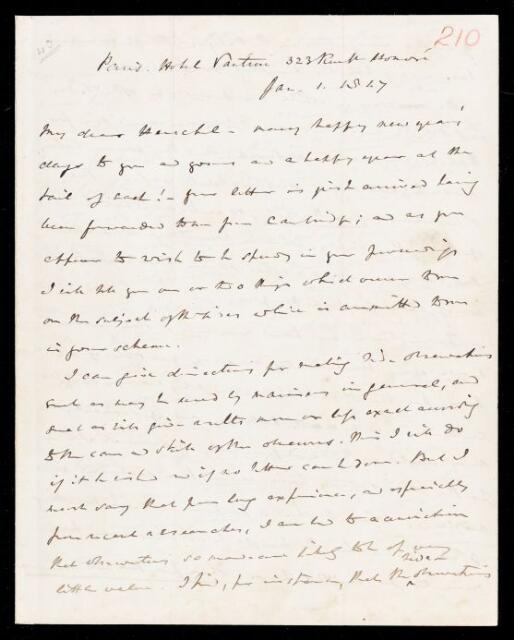 210
Paris. Hotel 323 Rue St Honoré
Jan. 1. 1847
My dear Herschel - many happy new years'
days to you and yours and a happy year at the
tail of each! - Your letter is just arrived having
been forwarded to me from Cambridge; and as you
appear to wish to be speedy in your proceedings
I will tell you one or two things which occur to me
on the subject of the which is committed to me
in your scheme.
I can give directions for making Tide observations
such as may be used by mariners in general, and
such as will give results more or less exact according
to the care and skill of the observers. This I will do
if it be wished and if no better can be done. But I
must say that from long experience, and especially
from recent researches, I am led to a conviction
that observations so made are likely to be of very
little value. I find, for instance, that the tide observations